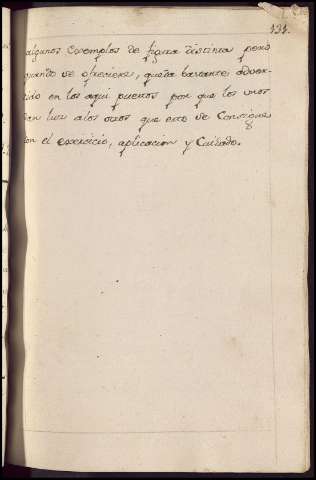 131.
algunos exemplos de figura distinta pero
quando se ofreciere, queda bastante adver-
tido en los aqui puestos por que los unos
dan luz a los otros que esto se Consigue
con el exercicio, aplicacion y Cuidado.